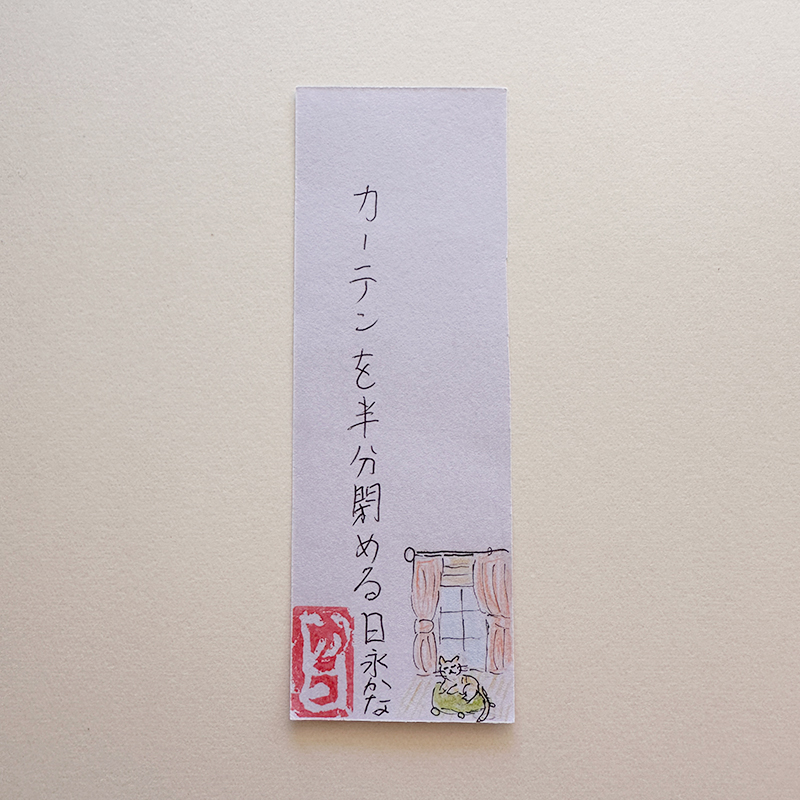 カーテンを半分閉める日永かな